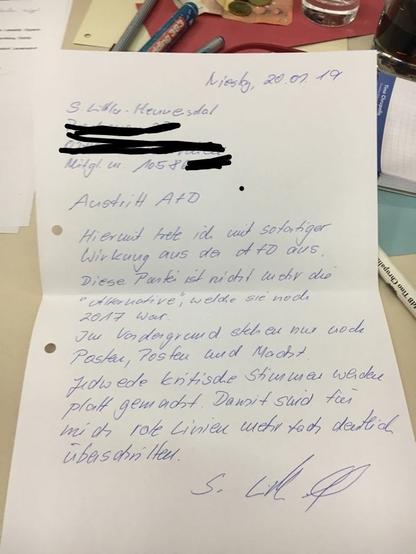 Niesky, 20.01.19
S. Littke-Hennersdorf
Mitgl. nr. 1058
Austritt AfD
Hiermit trete ich mit sofortiger
Wirkung aus der AfD aus.
Diese Partei ist nicht mehr die
"Alternative", welche sie noch
2017 war.
Im Vordergrund stehen nur noch
Posten, Posten und Macht.
Jedwede kritische Stimmen werden
platt gemacht. Damit sind für
mich rote Linien mehrfach deutlich
überschritten.
MdB Tino Chrupalla
Tino Chrupalla